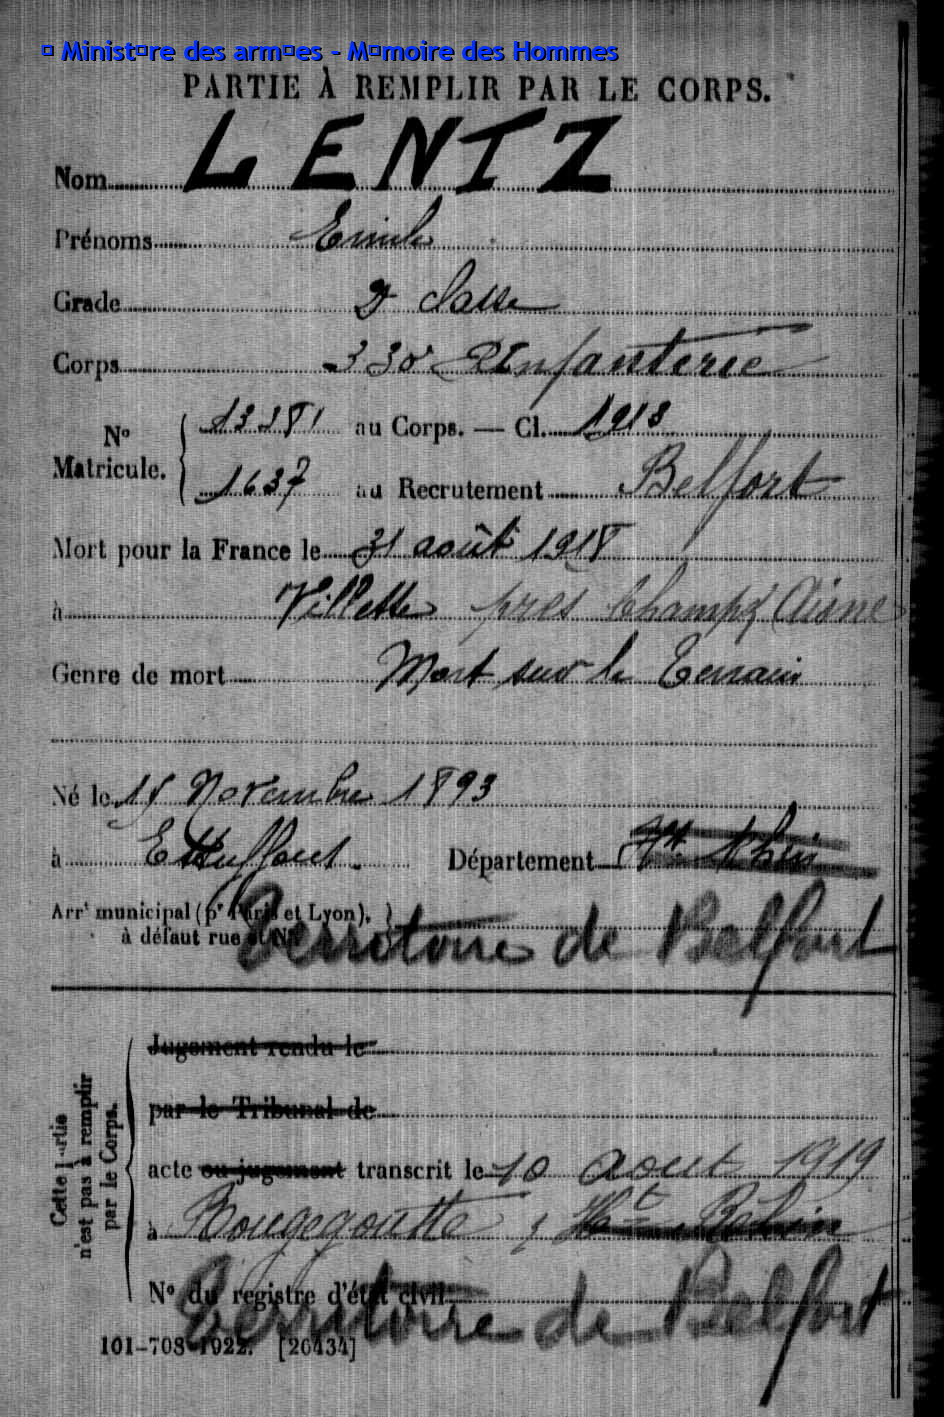 □ Minist□re des arm□es - M□moire des Hommes
PARTIE À REMPLIR PAR LE CORPS.
Nom LENTZ
Prénoms Emile
Grade 2e classe
Corps 330 RInfanterie
No
Matricule.
13281 au Corps. — Cl. 1913
1637 au Recrutement Belfort
Mort pour la France le 31 août 1918
à Villette près Champs Aisne
Genre de mort Mort sur le Terrain
Né le 15 Novembre 1893
à Etueffont Département Ht Rhin
Arrt municipal (pr Paris et Lyon),
à défaut rue et No
Territoire de Belfort
Cette partie
n'est pas à remplir
par le Corps.
Jugement rendu le
par le Tribunal de
acte ou jugement transcrit le 10 août 1919
à Rougegoutte Ht Rhin
No du registre d'état civil
Territoire de Belfort
101-708-1922. [26434]